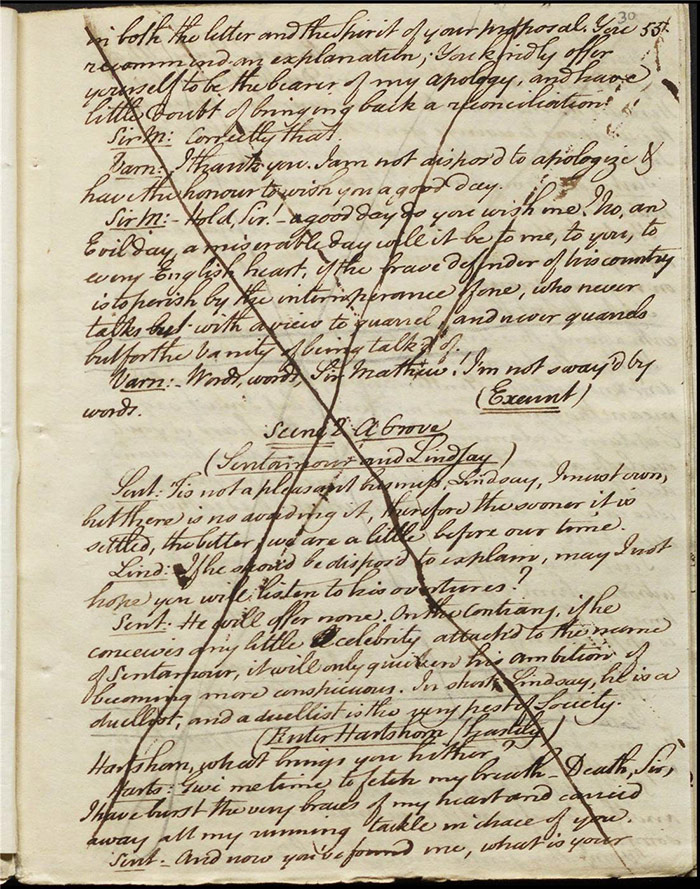 30
in both the letter and the spirit of your proposal. You 55.
recommend an explanation; You kindly offer
yourself to be the bearer of my apology, and have
little doubt of bringing back a reconciliation.
Sir M: Correctly that.
Varn: I thank you. I am not dispos'd to apologize &
have the honour to wish you a good day.
Sir M:- Hold, Sir!- a good day do you wish me? No, an
Evil day, a miserable day will it be to me, to you, to
every English heart, if the brave defender of his country
is to perish by the intemperance of one, who never
talks but with a view to quarrel, and never quarrels
but for the vanity of being talk'd of.
Varn:- Words, words, Sir Mathew! I'm not sway'd by
words. (Exeunt)
Scene 2. A Grove
(Sentamour and Lindsay)
Sent: 'Tis not a pleasant business, Lindsay, I must own,
but there is no avoiding it, therefore the sooner it is
settled, the better; we are a little before our time.
Lind: If he shou'd be dispos'd to explain, may I not
hope you will listen to his overtures?
Sent: He will offer none. On the contrary, if he
conceives any little celebrity attach'd to the name
of Sentamour, it will only quicken his ambition of
becoming more conspicuous. In short Lindsay, he is a
duellist, and a duellist is the very pest of Society.
(Enter Hartshorn hastily)
Hartshorn, what brings you hither?
Harts: Give me time to fetch my breath - Death, Sir,
I have burst the very braces of my heart and carried
away all my running tackle in chace of you.
Sent - And now you've found me, what is your